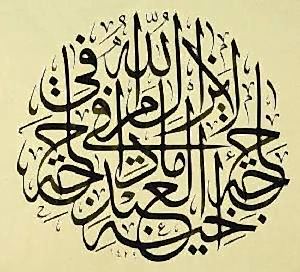 لا يزال الله في حاجة العبد ما دام في حاجة أخيه